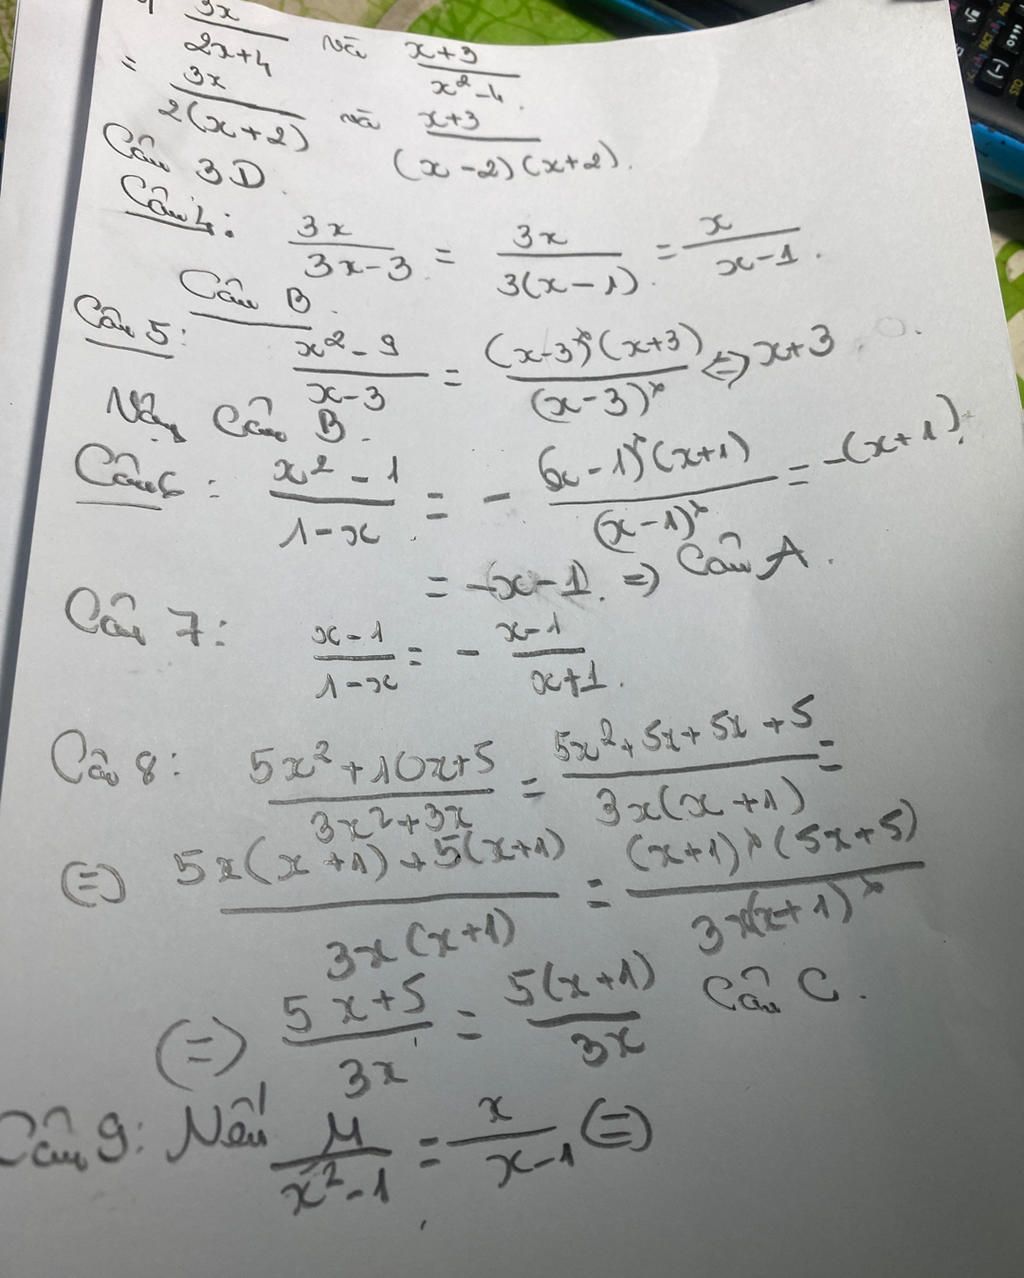 3x/(2x+4) và (x+3)/(x²-4).
= 3x/(2(x+2)) và (x+3)/((x-2)(x+2)).
Câu 3D.
Câu 4: 3x/(3x-3) = 3x/(3(x-1)) = x/(x-1).
Câu B.
Câu 5: (x²-9)/(x-3) = ((x-3)(x+3))/(x-3) ⇔ x+3
Vậy Câu B.
Câu 6: (x²-1)/(1-x) = - ((x-1)(x+1))/(x-1) = -(x+1).
= -x-1. ⇒ Câu A.
Câu 7: (x-1)/(1-x) = - (x-1)/(x+1).
Câu 8: (5x²+10x+5)/(3x²+3x) = (5x²+5x+5x+5)/(3x(x+1)) =
(=) (5x(x+1)+5(x+1))/(3x(x+1)) = ((x+1)(5x+5))/(3x(x+1))
(=) (5x+5)/(3x) = (5(x+1))/(3x) Câu C.
Câu 9: Nếu M/(x²-1) = x/(x-1) (=)